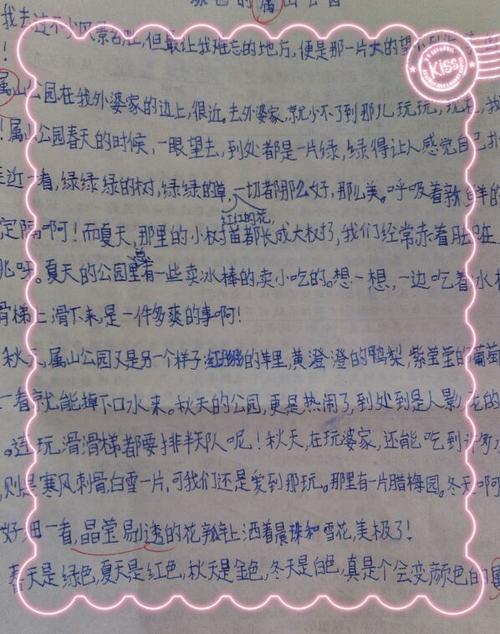 的属山公园
我去过不少风景名胜,但最让我难忘的地方,便是那一片大的望
!
属山公园在我外婆家的边上,很近,去外婆家,就少不了到那儿玩玩,现在,我
!属山公园春天的时候,一眼望去,到处都是一片绿,绿得让人感觉自己
走近一看,绿绿绿的树,绿绿的草,一切都那么好,那么美。呼吸着新鲜的
红红的花,
定隔啊!而夏天,那里的小树苗都长成大树了,我们经常赤着脚在
儿呀。夏天的公园里有一些卖冰棒的,卖小吃的。想一想,一边吃着冰棒
滑梯上滑下来,是一件多爽的事啊!
秋天,属山公园又是另一个样子,的苹里,黄澄澄的鸭梨,紫莹莹的葡萄
一看就能掉下口水来。秋天的公园,更是热闹了,到处到是人影,
。连玩滑滑梯都要排半天队呢!秋天,在玩婆家,还能吃到许多
,则是寒风刺骨,白雪一片,可我们还是爱到那玩。那里有一片腊梅园。冬天啊
好细一看,晶莹剔透的花瓣上洒着晨珠和雪花,美极了!
春天是绿色,夏天是红色,秋天是金色,冬天是白色,真是个会变颜色的属
Kiss